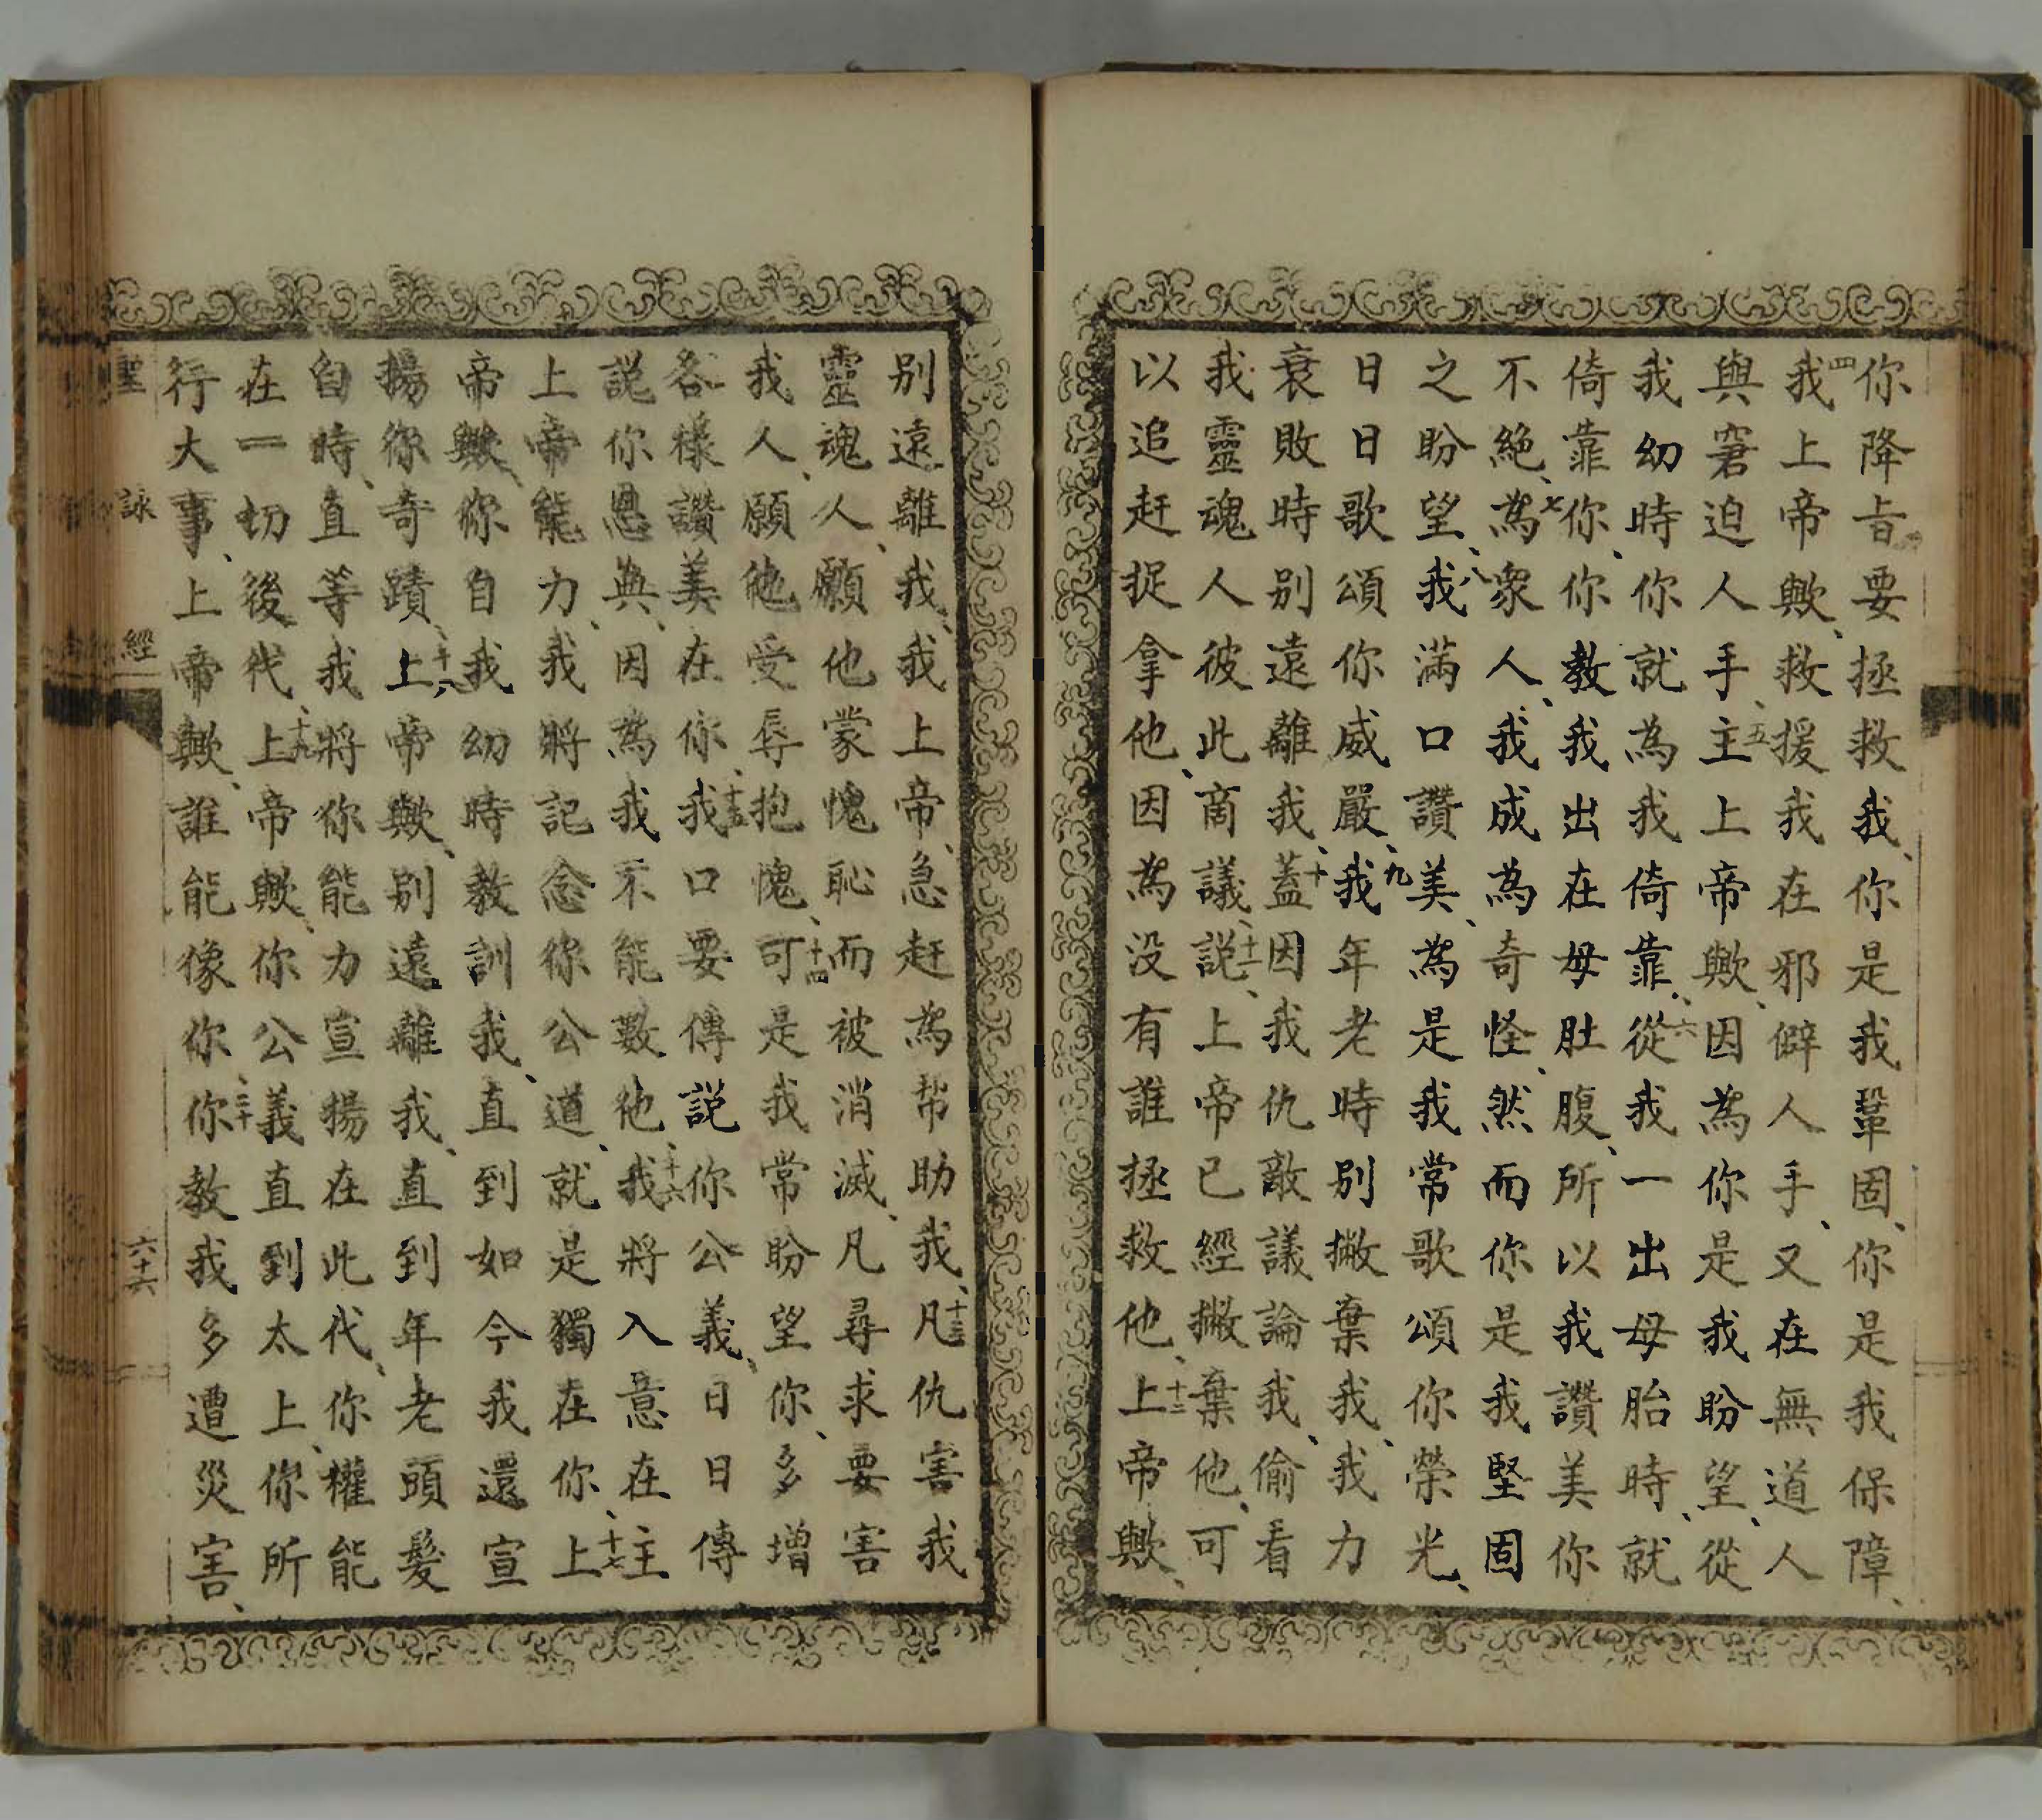 你降旨要拯救我、你是我鞏固、你是我保障、
四我上帝歟、救援我在邪僻人手、又在無道人
與窘迫人手、五主上帝歟、因為你是我盼望、從
我幼時你就為我倚靠、六從我一出母胎時、就
倚靠你、你教我出在母肚腹、所以我讚美你
不絕、七為衆人、我成為奇怪、然而你是我堅固
之盼望、八我滿口讚美、為是我常歌頌你榮光、
日日歌頌你威嚴、九我年老時別撇棄我、我力
衰敗時別遠離我、十蓋因我仇敵議論我、偷看
我靈魂人彼此商議、十一說、上帝已經撇棄他、可
以追赶捉拿他、因為没有誰拯救他、十二上帝歟、
别遠離我、我上帝、急赶為帮助我、十三凡仇害我
靈魂人、願他蒙愧恥而被消滅、凡尋求要害
我人、願他受辱抱愧、十四可是我常盼望你、多增
各樣讚美在你、十五我口要傳説你公義、日日傳
説你恩典、因為我不能數他、十六我將入意在主
上帝能力、我將記念你公道、就是獨在你、十七上
帝歟、你自我幼時教訓我、直到如今我還宣
揚你奇蹟、十八上帝歟、别遠離我、直到年老頭髮
白時、直等我將你能力宣揚在此代、你權能
在一切後代、十九上帝歟、你公義直到太上、你所
行大事、上帝歟、誰能像你、二十你教我多遭災害、
聖詠經 六十六